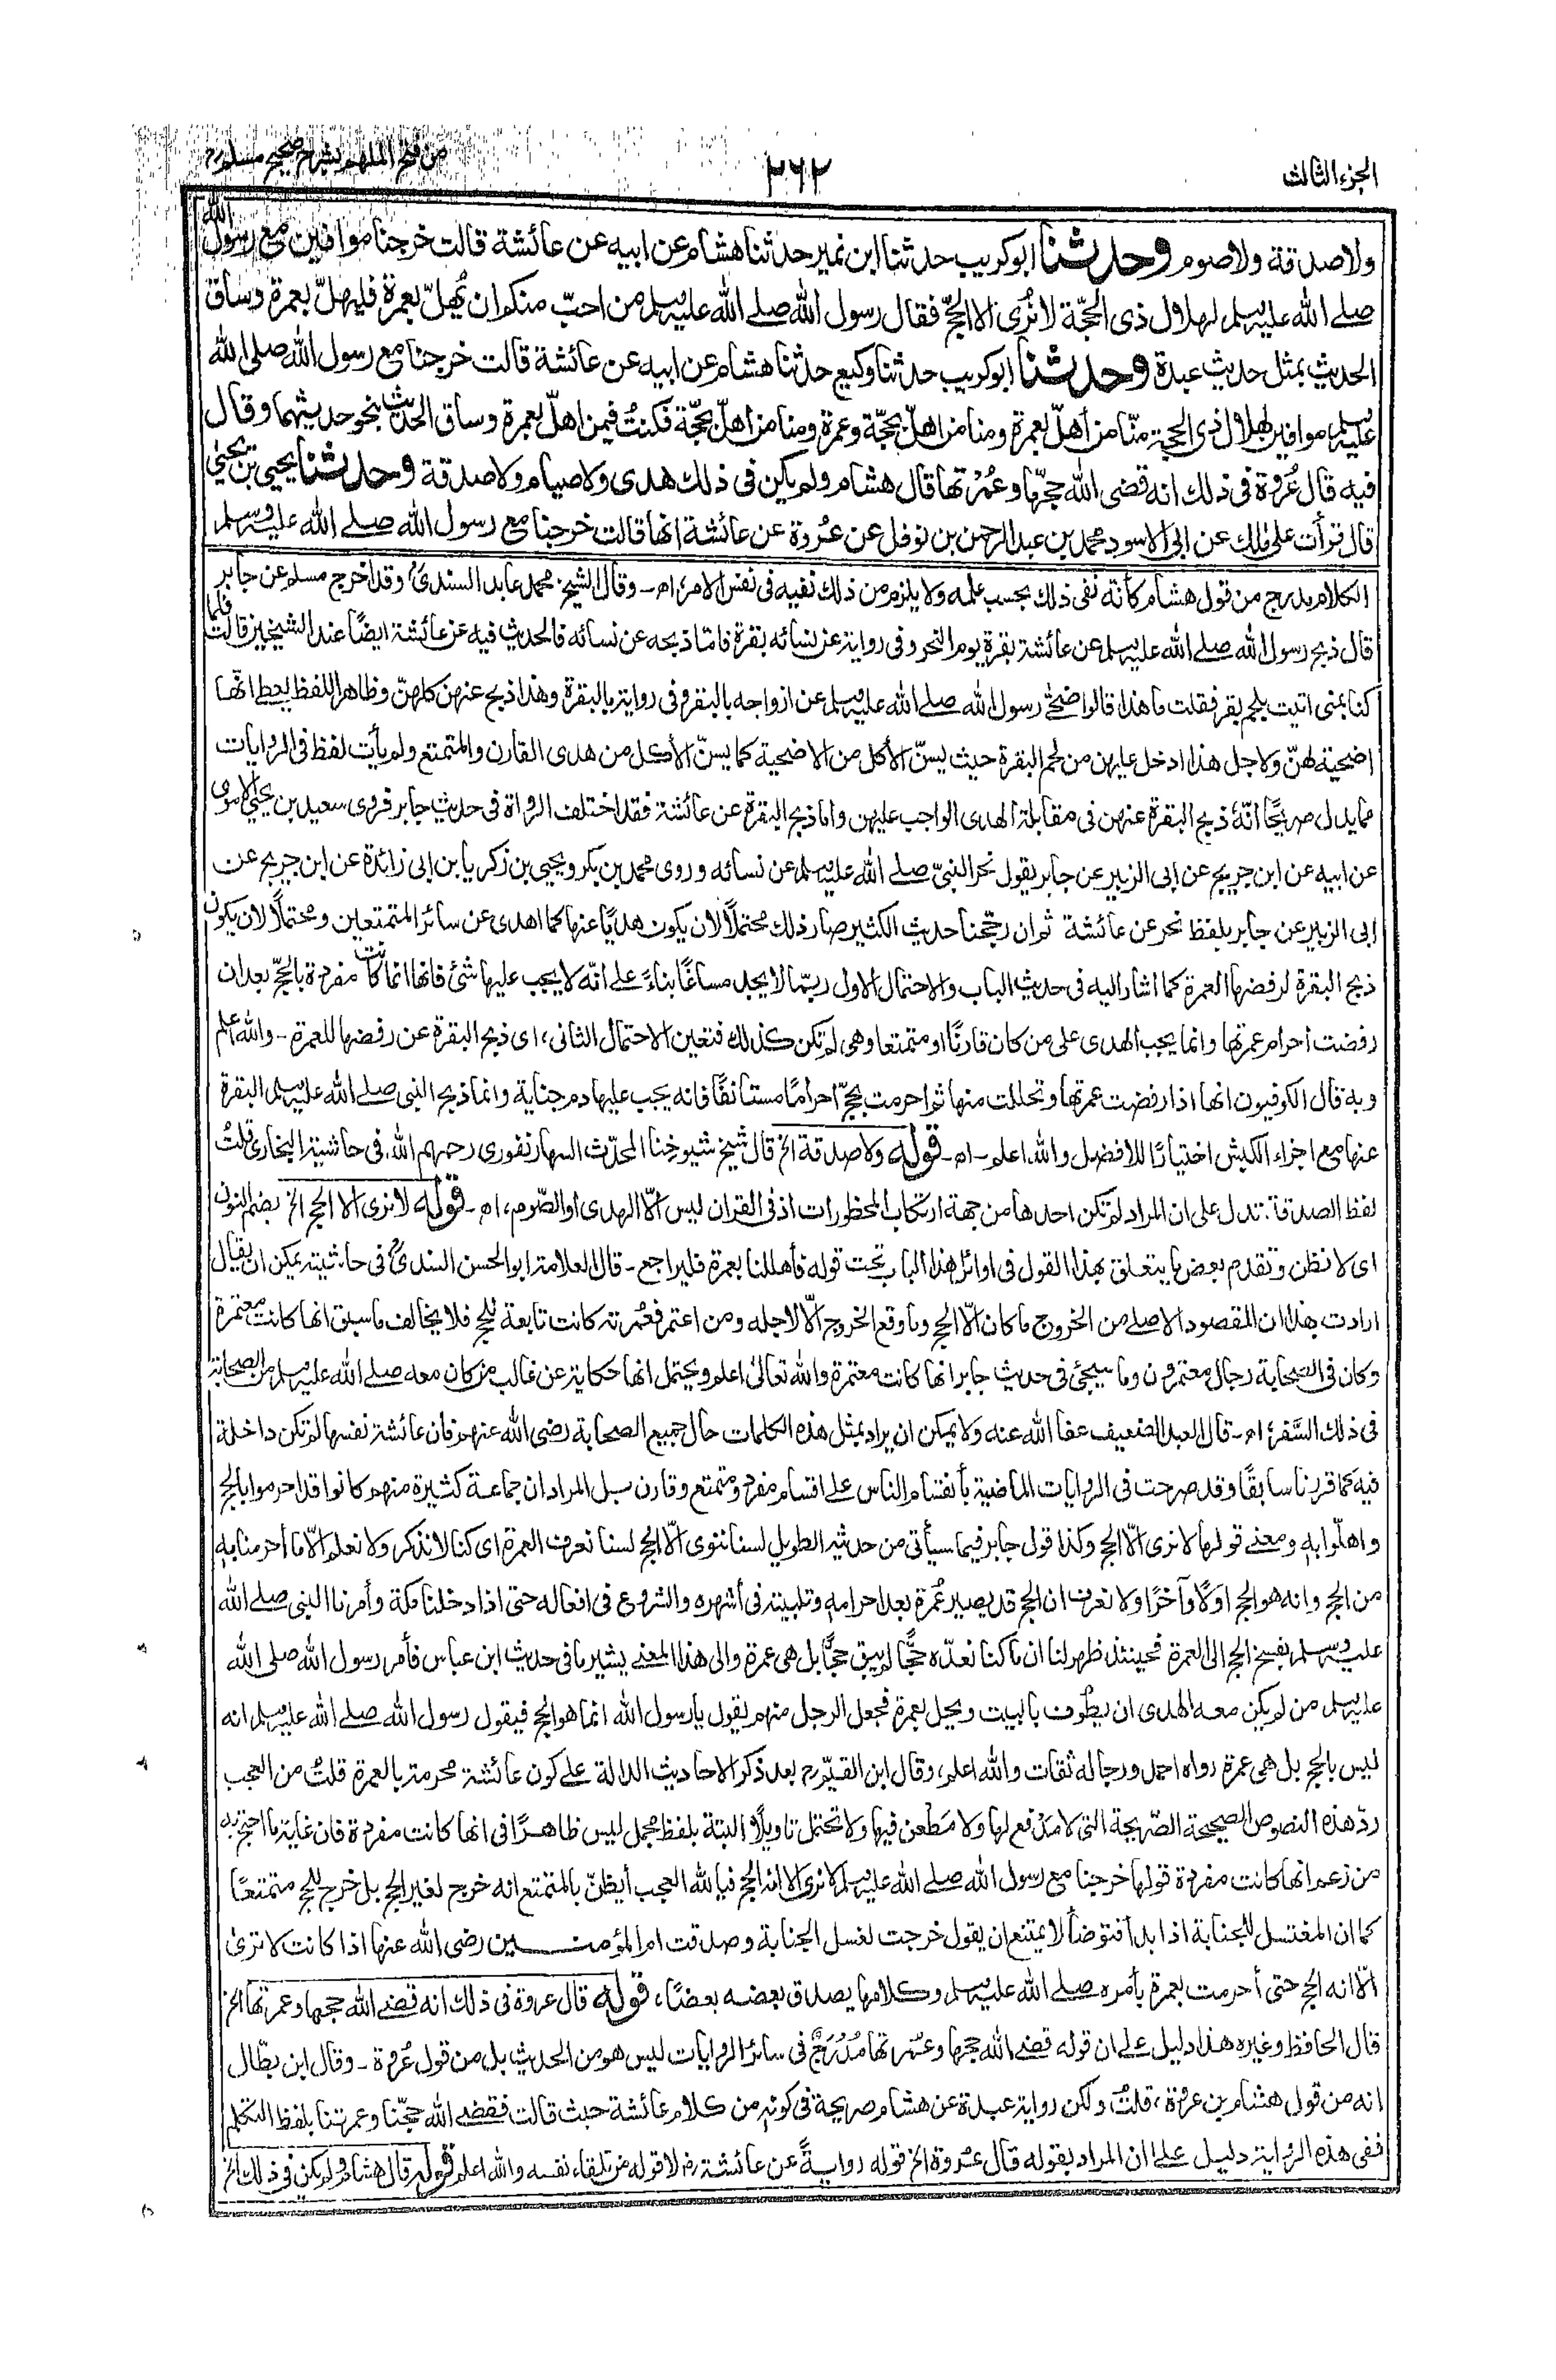 الجزء الثالث
٢٦٢
من فتح الملهم بشرح صحيح مسلم
ولا صدقة ولا صوم وحدثنا ابو كريب حدثنا ابن نمير حدثنا هشام عن ابيه عن عائشة قالت خرجنا موافين مع رسول الله
صلے الله عليه وسلم لهلال ذى الحجّة لا نُرى الا الحجّ فقال رسول الله صلے الله عليه وسلم من احبّ منكم ان يُهلّ بعمرة فليهلّ بعمرة وساق
الحديث بمثل حديث عبدة وحدثنا ابو كريب حدثنا وكيع حدثنا هشام عن ابيه عن عائشة قالت خرجنا مع رسول الله صلى الله
عليه وسلم موافين لهلال ذى الحجة منّا من أهلّ بعمرة ومنا من اهلّ بحجّة وعمرة ومنا من اهلّ بحجّة فكنتُ فيمن اهلّ بعمرة وساق الحديث بنحو حديثهما وقال
فيه قال عُروة فى ذلك انه قضى الله حجّها وعُمْرتها قال هشام ولم يكن فى ذلك هدى ولا صيام ولا صدقة وحدثنا يحيى بن يحيىٰ
قال قرأت على مٰلك عن ابى الاسود محمد بن عبد الرحمن بن نوفل عن عُروة عن عائشة انها قالت خرجنا مع رسول الله صلے الله عليه وسلم
الكلام مدرج من قول هشام كأنه نفى ذلك بحسب علمه ولا يلزم من ذلك نفيه فى نفس الامر، اه- وقال الشيخ محمد عابد السندى وقد اخرج مسلم عن جابر
قال ذبح رسول الله صلے الله عليه وسلم عن عائشة بقرة يوم النحر وفى رواية عن نسائه بقرة فامّا ذبحه عن نسائه فالحديث فيه عن عائشة ايضًا عند الشيخين قالت فلما
كنا بمنى اتيت بلحم بقر فقلت ما هذا قالوا ضحّٰى رسول الله صلے الله عليه وسلم عن ازواجه بالبقر وفى رواية بالبقرة وهذا ذبح عنهن كلهنّ وظاهر اللفظ يعطى انّها
اضحية لهنّ ولاجل هذا ادخل عليهن من لحم البقرة حيث يسنّ الأكل من الاضحية كما يسنّ الأكل من هدى القارن والمتمتع ولم يأت لفظ فى الروايات
مما يدل صريحًا انّه ذبح البقرة عنهن فى مقابلة الهدى الواجب عليهن واما ذبح البقرة عن عائشة فقد اختلف الرواة فى حديث جابر فروى سعيد بن يحيى الاموى
عن ابيه عن ابن جريج عن ابى الزبير عن جابر يقول نحر النبىّ صلے الله عليه وسلم عن نسائه وروى محمد بن بكر ويحيى بن زكريا بن ابى زائدة عن ابن جريج عن
ابى الزبير عن جابر بلفظ نحر عن عائشة ثم ان رجّحنا حديث الكثير صار ذلك محتملًا لان يكون هديًا عنها كما اهدى عن سائر المتمتعين ومحتملًا لان يكون
ذبح البقرة لرفضها العمرة كما اشار اليه فى حديث الباب والاحتمال الاول ربّما لا يجد مساغًا بناءً على انّه لا يجب عليها شئ فانها انما كانت مفردة بالحجّ بعد ان
رفضت احرام عمرتها وانما يجب الهدى على من كان قارنًا او متمتعا وهى لم تكن كذلك فتعين الاحتمال الثانى، اى ذبح البقرة عن رفضها للعمرة- والله اعلم
وبه قال الكوفيون انها اذا رفضت عمرتها وتحللت منها ثم احرمت بحجّ احرامًا مستأنفًا فانه يجب عليها دم جناية وانما ذبح النبى صلے الله عليه وسلم البقرة
عنها مع اجزاء الكبش اختيارًا للافضل والله اعلم- اه- قوله ولا صدقة الخ قال شيخ شيوخنا المحدّث السهارنفورى رحمهم الله فى حاشية البخارى قلتُ
لفظ الصدقة تدل على ان المراد لم تكن احدها من جهة ارتكاب المحظورات اذ فى القران ليس الّا الهدى او الصّوم، اه- قوله لا نرى الا الحج الخ بضم النون
اى لا نظن وتقدم بعض ما يتعلق بهذا القول فى اوائل هذا الباب تحت قوله فأهللنا بعمرة فليراجع- قال العلامة ابو الحسن السندى فى حاشيته يمكن ان يقال
ارادت بهذا ان المقصود الاصلے من الخروج ما كان الّا الحج وما وقع الخروج الّا لاجله ومن اعتمر فعُمرته كانت تابعة للحج فلا يخالف ما سبق انها كانت معتمرة
وكان فى الصحابة رجال معتمرون وما سيجئ فى حديث جابر انها كانت معتمرة والله تعالىٰ اعلم ويحتمل انها حكاية عن غالب من كان معه صلے الله عليه وسلم من الصحابة
فى ذلك السَّفر، اه- قال العبد الضعيف عفا الله عنه ولا يمكن ان يراد بمثل هذه الكلمات حال جميع الصحابة رضى الله عنهم فان عائشة نفسها لم تكن داخلة
فيه كما قررنا سابقًا وقد صرحت فى الروايات الماضية بأنقسام الناس على اقسام مفرد ومتمتع وقارن بل المراد ان جماعة كثيرة منهم كانوا قد احرموا بالحج
واهلّوا به ومعنى قولها لا نرى الّا الحج وكذا قول جابر فيما سيأتى من حديثه الطويل لسنا ننوى الّا الحج لسنا نعرف العمرة اى كنا لا نذكر ولا نعلم الّا ما أحرمنا به
من الحج وانه هو الحج اوّلًا وآخرًا ولا نعرف ان الحج قد يصير عُمرة بعد احرامه وتلبيته فى أشهره والشروع فى افعاله حتى اذا دخلنا مكة وأمرنا النبى صلے الله
عليه وسلم بفسخ الحج الى العمرة فحينئذ ظهر لنا ان ما كنا نعدّه حجًّا لم يبق حجًّا بل هى عمرة والى هذا المعنى يشير ما فى حديث ابن عباس فأمر رسول الله صلى الله
عليه وسلم من لم يكن معه الهدى ان يطوف بالبيت ويحل بعمرة فجعل الرجل منهم يقول يا رسول الله انما هو الحج فيقول رسول الله صلے الله عليه وسلم انه
ليس بالحج بل هى عمرة رواه احمد ورجاله ثقات والله اعلم، وقال ابن القيّم بعد ذكر الاحاديث الدالة على كون عائشة محرمة بالعمرة قلتُ من العجب
ردّ هذه النصوص الصحيحة الصّريحة التى لا مَدْفع لها ولا مَطعن فيها ولا تحتمل تاويلًا البتة بلفظ مجمل ليس ظاهرًا فى انها كانت مفردة فان غاية ما احتج به
من زعم انها كانت مفردة قولها خرجنا مع رسول الله صلے الله عليه وسلم لا نرى الا انه الحج فيا لله العجب أيظنّ بالمتمتع انه خرج لغير الحج بل خرج للحج متمتعًا
كما ان المغتسل للجنابة اذا بدأ فتوضأ لا يمتنع ان يقول خرجت لغسل الجنابة وصدقت ام المؤمنين رضى الله عنها اذا كانت لا ترىٰ
الّا انه الحج حتى أحرمت بعمرة بأمره صلے الله عليه وسلم وكلامها يصدق بعضه بعضًا، قوله قال عروة فى ذلك انه قضى الله حجها وعمرتها الخ
قال الحافظ وغيره هذا دليل على ان قوله قضى الله حجها وعمرتها مُدْرَجٌ فى سائر الروايات ليس هو من الحديث بل من قول عُروة- وقال ابن بطّال
انه من قول هشام بن عروة، قلتُ ولكن رواية عبدة عن هشام صريحة فى كونه من كلام عائشة حيث قالت فقضى الله حجّنا وعمرتنا بلفظ التكلم
ففى هذه الرواية دليل على ان المراد بقوله قال عُروة الخ قوله روايةً عن عائشة لا قوله من تلقاء نفسه والله اعلم قوله قال هشام ولم يكن فى ذلك الخ